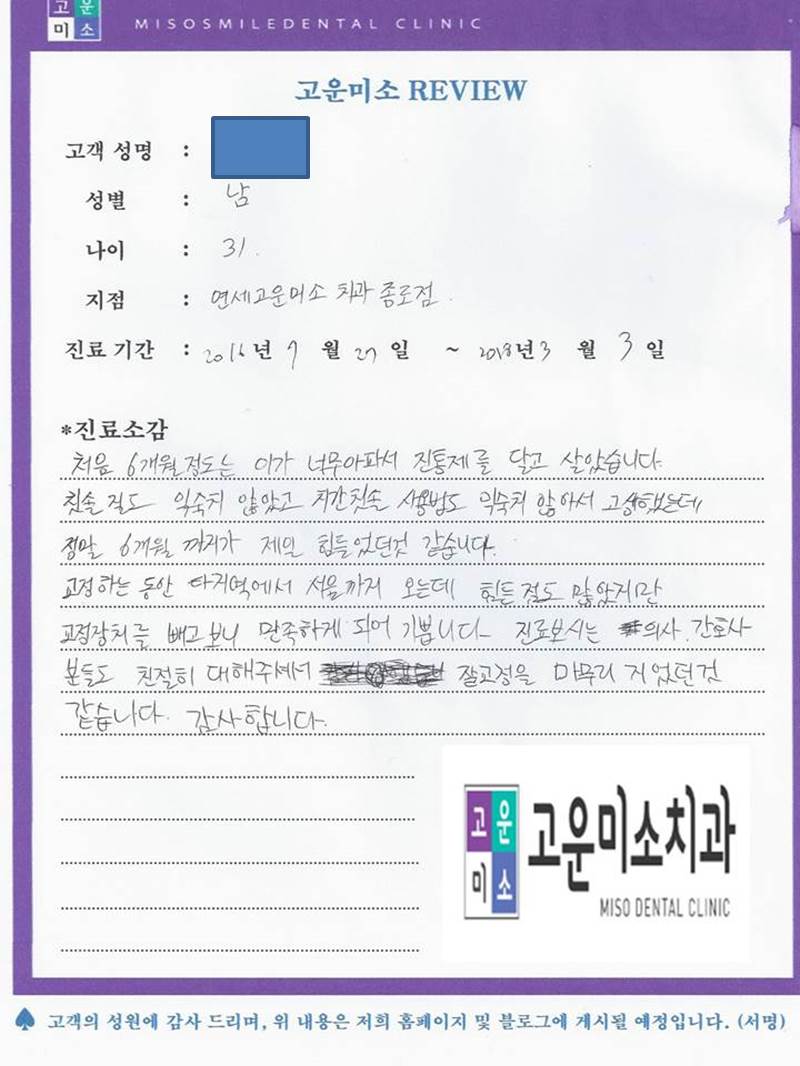 고운
미소
MISOSMILEDENTAL CLINIC
고운미소 REVIEW
고객 성명 :
성별 : 남
나이 : 31.
지점 : 연세고운미소 치과 종로점.
진료 기간 : 2016년 7월 27일 ~ 2018년 3월 3일
*진료소감
처음 6개월정도는 이가 너무아파서 진통제를 달고 살았습니다.
칫솔질도 익숙치 않았고 치간칫솔 사용법도 익숙치 않아서 고생했는데
정말 6개월 까지가 제일 힘들었던것 같습니다.
교정하는 동안 타지역에서 서울까지 오는데 힘든점도 많았지만
교정장치를 빼고보니 만족하게 되어 기쁩니다. 진료보시는 의사.간호사
분들도 친절히 대해주셔서 잘교정을 마무리 지었던것
같습니다. 감사합니다.
고운
미소
고운미소치과
MISO DENTAL CLINIC
♠ 고객의 성원에 감사 드리며, 위 내용은 저희 홈페이지 및 블로그에 게시될 예정입니다. (서명)